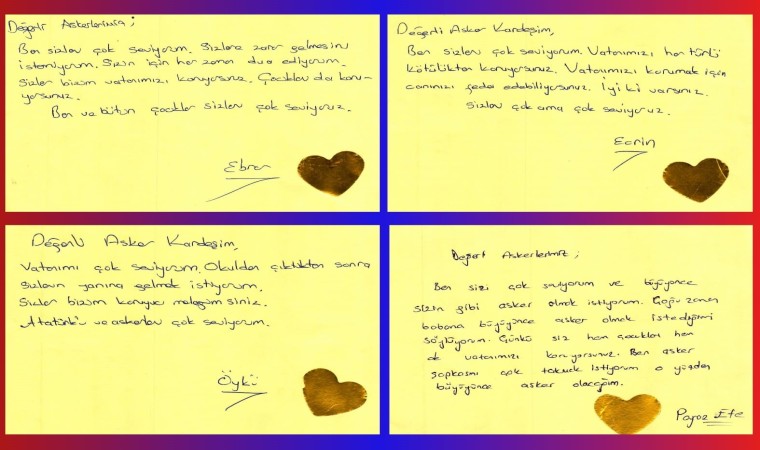 Değerli Askerlerimiz;
Ben sizleri çok seviyorum. Sizlere zarar gelmesini
istemiyorum. Sizin için her zaman dua ediyorum.
Sizler bizim vatanımızı koruyorsunuz. Çocukları da koru-
yorsunuz.
Ben ve bütün çocuklar sizleri çok seviyoruz.
Ebrar
Değerli Asker Kardeşim,
Ben sizleri çok seviyorum. Vatanımızı her türlü
kötülükten koruyorsunuz. Vatanımızı korumak için
canınızı feda edebiliyorsunuz. İyi ki varsınız.
Sizleri çok ama çok seviyoruz.
Ecrin
Değerli Asker Kardeşim,
Vatanımı çok seviyorum. Okuldan çıktıktan sonra
sizlerin yanına gelmek istiyorum.
Sizler bizim koruyucu meleğimizsiniz.
Atatürk'ü ve askerleri çok seviyorum.
Öykü
Değerli Askerlerimiz;
Ben sizi çok seviyorum ve büyüyünce
sizin gibi asker olmak istiyorum. Çoğu zaman
babama büyüyünce asker olmak istediğimi
söylüyorum. Çünkü siz hem çocukları hem
de vatanımızı koruyorsunuz. Ben asker
şapkasını çok takmak istiyorum o yüzden
büyüyünce asker olacağım.
Poyraz Efe